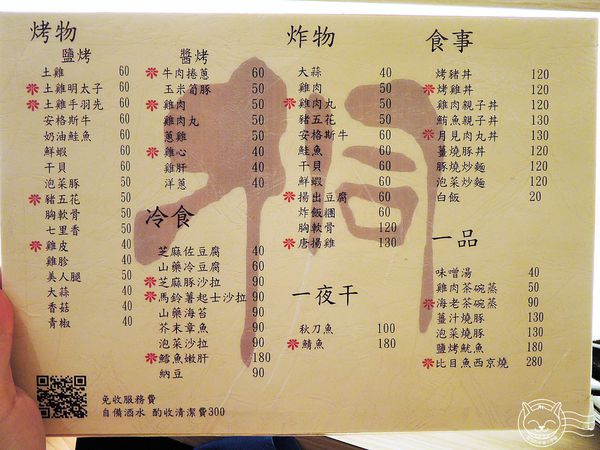 烤物
鹽烤
土雞 60
❋土雞明太子 60
❋土雞手羽先 60
安格斯牛 60
奶油鮭魚 60
鮮蝦 60
干貝 50
泡菜豚 50
❋豬五花 50
胸軟骨 50
七里香 50
❋雞皮 40
雞胗 40
美人腿 50
大蒜 40
香菇 40
青椒 40
醬烤
❋牛肉捲蔥 60
玉米筍豚 50
❋雞肉 50
雞肉丸 50
蔥雞 50
❋雞心 40
雞肝 40
洋蔥 40
冷食
芝麻佐豆腐 40
山藥冷豆腐 60
❋芝麻豚沙拉 90
❋馬鈴薯起士沙拉 90
山藥海苔 90
芥末章魚 90
泡菜沙拉 90
❋鱈魚嫩肝 180
納豆 90
炸物
大蒜 40
雞肉 50
❋雞肉丸 50
豬五花 50
安格斯牛 60
鮭魚 60
干貝 50
鮮蝦 60
❋揚出豆腐 60
炸飯糰 60
胸軟骨 120
❋唐揚雞 130
一夜干
秋刀魚 100
❋鯖魚 180
食事
烤豬丼 120
❋烤雞丼 120
雞肉親子丼 120
鮪魚親子丼 130
❋月見肉丸丼 130
薑燒豚丼 120
豚燒炒麵 120
泡菜炒麵 120
白飯 20
一品
味噌湯 40
雞肉茶碗蒸 50
❋海老茶碗蒸 90
薑汁燒豚 130
泡菜燒豚 130
鹽烤魷魚 180
❋比目魚西京燒 280
免收服務費
自備酒水 酌收清潔費300